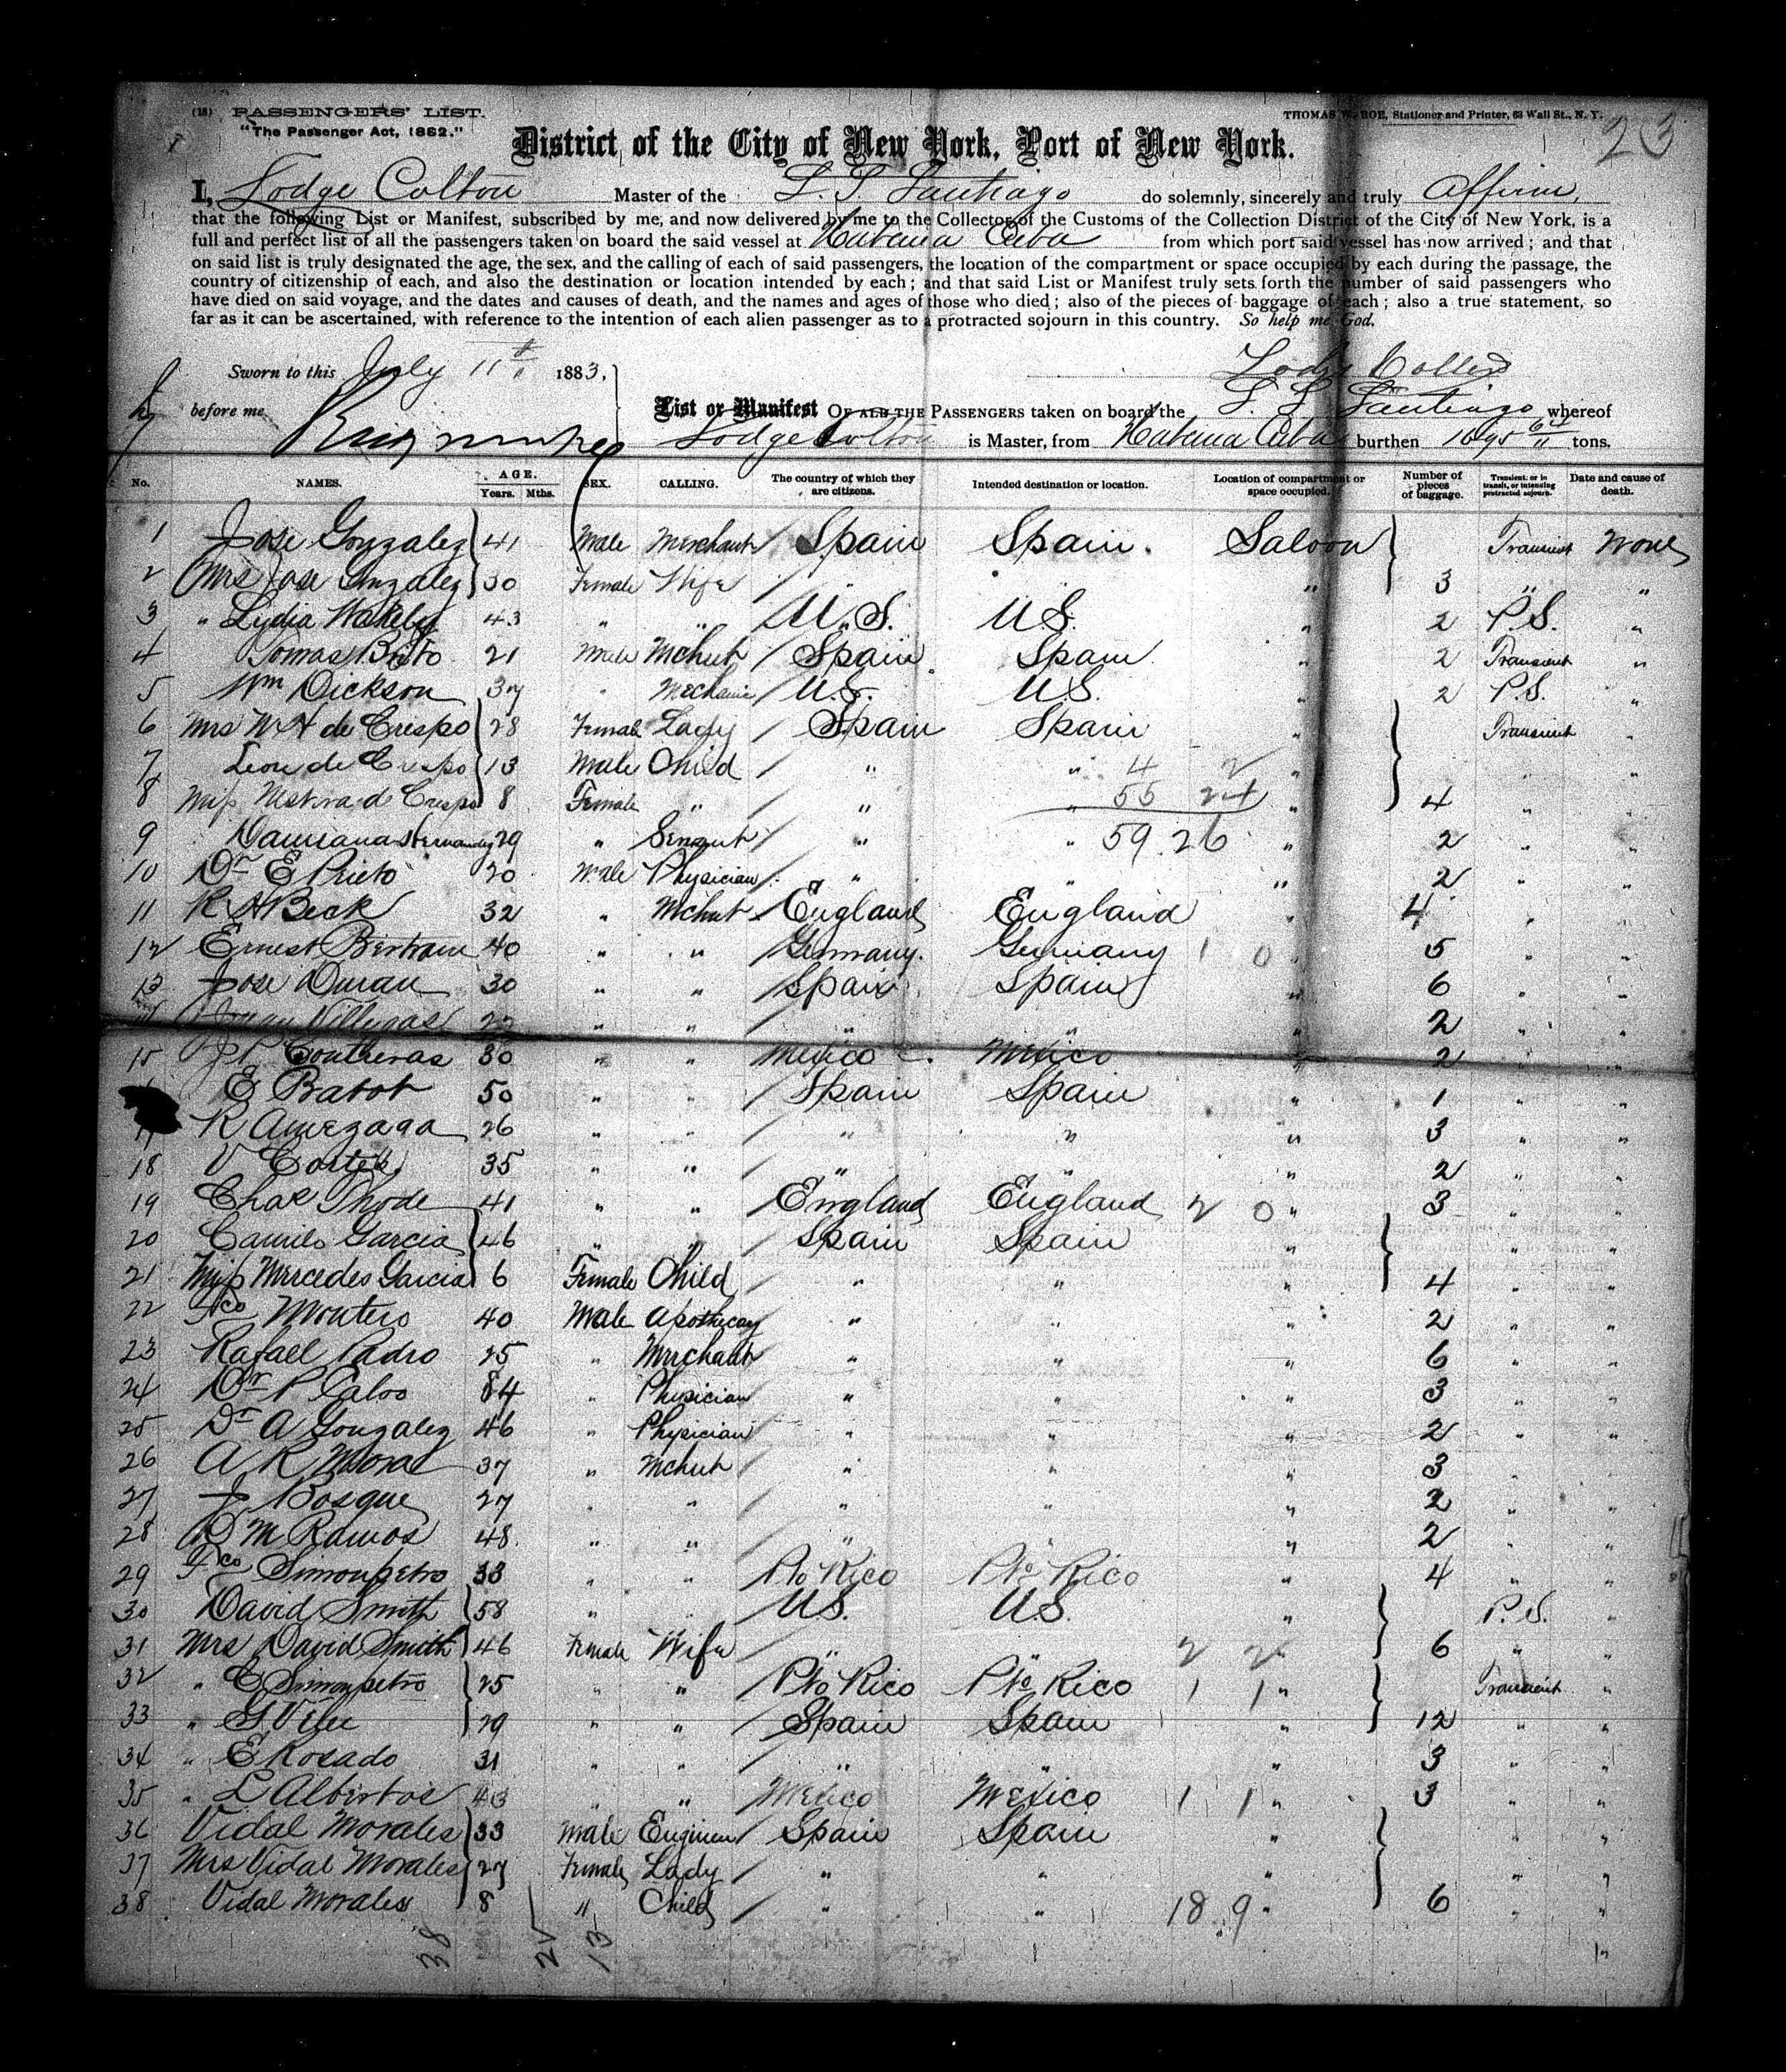 (18) PASSENGERS' LIST.
THOMAS W. ROE, Stationer and Printer, 63 Wall St., N. Y.
"The Passenger Act, 1882."
23
District of the City of New York, Port of New York.
I, Lodge Colton Master of the S. S. Santiago do solemnly, sincerely and truly Affirm,
that the following List or Manifest, subscribed by me, and now delivered by me to the Collector of the Customs of the Collection District of the City of New York, is a
full and perfect list of all the passengers taken on board the said vessel at Habana Cuba from which port said vessel has now arrived; and that
on said list is truly designated the age, the sex, and the calling of each of said passengers, the location of the compartment or space occupied by each during the passage, the
country of citizenship of each, and also the destination or location intended by each; and that said List or Manifest truly sets forth the number of said passengers who
have died on said voyage, and the dates and causes of death, and the names and ages of those who died; also of the pieces of baggage of each; also a true statement, so
far as it can be ascertained, with reference to the intention of each alien passenger as to a protracted sojourn in this country. So help me God.
Sworn to this July 11th 1883, Lodge Colton
before me List or Manifest OF ALL THE PASSENGERS taken on board the S. S. Santiago whereof
Lodge Colton is Master, from Habana Cuba burthen 1695 tons.
No. NAMES. AGE. Years. Mths. SEX. CALLING. The country of which they are citizens. Intended destination or location. Location of compartment or space occupied. Number of pieces of baggage. Transient: or in transit, or intending protracted sojourn. Date and cause of death.
1 Jose Gonzalez 41 Male Merchant Spain Spain. Saloon Transient None
2 Mrs Jose Gonzalez 30 Female Wife " " " 3 " "
3 " Lydia Wakeley 43 " " U.S. U.S. " 2 P.S. "
4 Tomas Brito 21 Male Mchnt Spain Spain " 2 Transient "
5 Wm Dickson 37 " Mechanic U.S. U.S. " 2 P.S. "
6 Mrs W H de Crespo 28 Female Lady Spain Spain " Transient "
7 Leon de Crespo 13 Male Child " " 4 2 " " "
8 Miss de Crespo 8 Female " " " 55 24 " 4 " "
9 Damiana Hernandez 29 " Servant " " 59.26 " 2 " "
10 Dr E Prieto 20 Male Physician " " " 2 " "
11 R H Beck 32 " Mchnt England England " 4 " "
12 Ernest Bertram 40 " " Germany. Germany 1 0 " 5 " "
13 Jose Duran 30 " " Spain Spain " 6 " "
14 Juan Villegas 22 " " " " " 2 " "
15 Contreras 30 " " Mexico Mexico " 2 " "
E Babot 50 " " Spain Spain " 1 " "
17 R Amezaga 26 " " " " " 3 " "
18 V Cortes 35 " " " " " 2 " "
19 Chas Thode 41 " " England England 2 0 " 3 " "
20 Camilo Garcia 46 " " Spain Spain " " "
21 Miss Mercedes Garcia 6 Female Child " " " 4 " "
22 Fco Montero 40 Male Apothecary " " " 2 " "
23 Rafael Padro 25 " Merchant " " " 6 " "
24 Dr P Calvo 54 " Physician " " " 3 " "
25 Dr A Gonzalez 46 " Physician " " " 2 " "
26 A R Mora 37 " Mchnt " " " 3 " "
27 J Bosque 27 " " " " " 2 " "
28 D M Ramos 48 " " " " " 2 " "
29 Fco Simonpetro 33 " " Pto Rico Pto Rico " 4 " "
30 David Smith 58 " " U.S. U.S. " P.S. "
31 Mrs David Smith 46 Female Wife " " 2 2 " 6 " "
32 " E Simonpetro 25 " " Pto Rico Pto Rico 1 1 " Transient "
33 " G 29 " " Spain Spain " 12 " "
34 " E Rosado 31 " " " " " 3 " "
35 " L Albertos 43 " " Mexico Mexico 1 1 " 3 " "
36 Vidal Morales 33 Male Engineer Spain Spain " " "
37 Mrs Vidal Morales 27 Female Lady " " " " "
38 Vidal Morales 8 " Child " " 18 9 " 6 " "
38 25 13